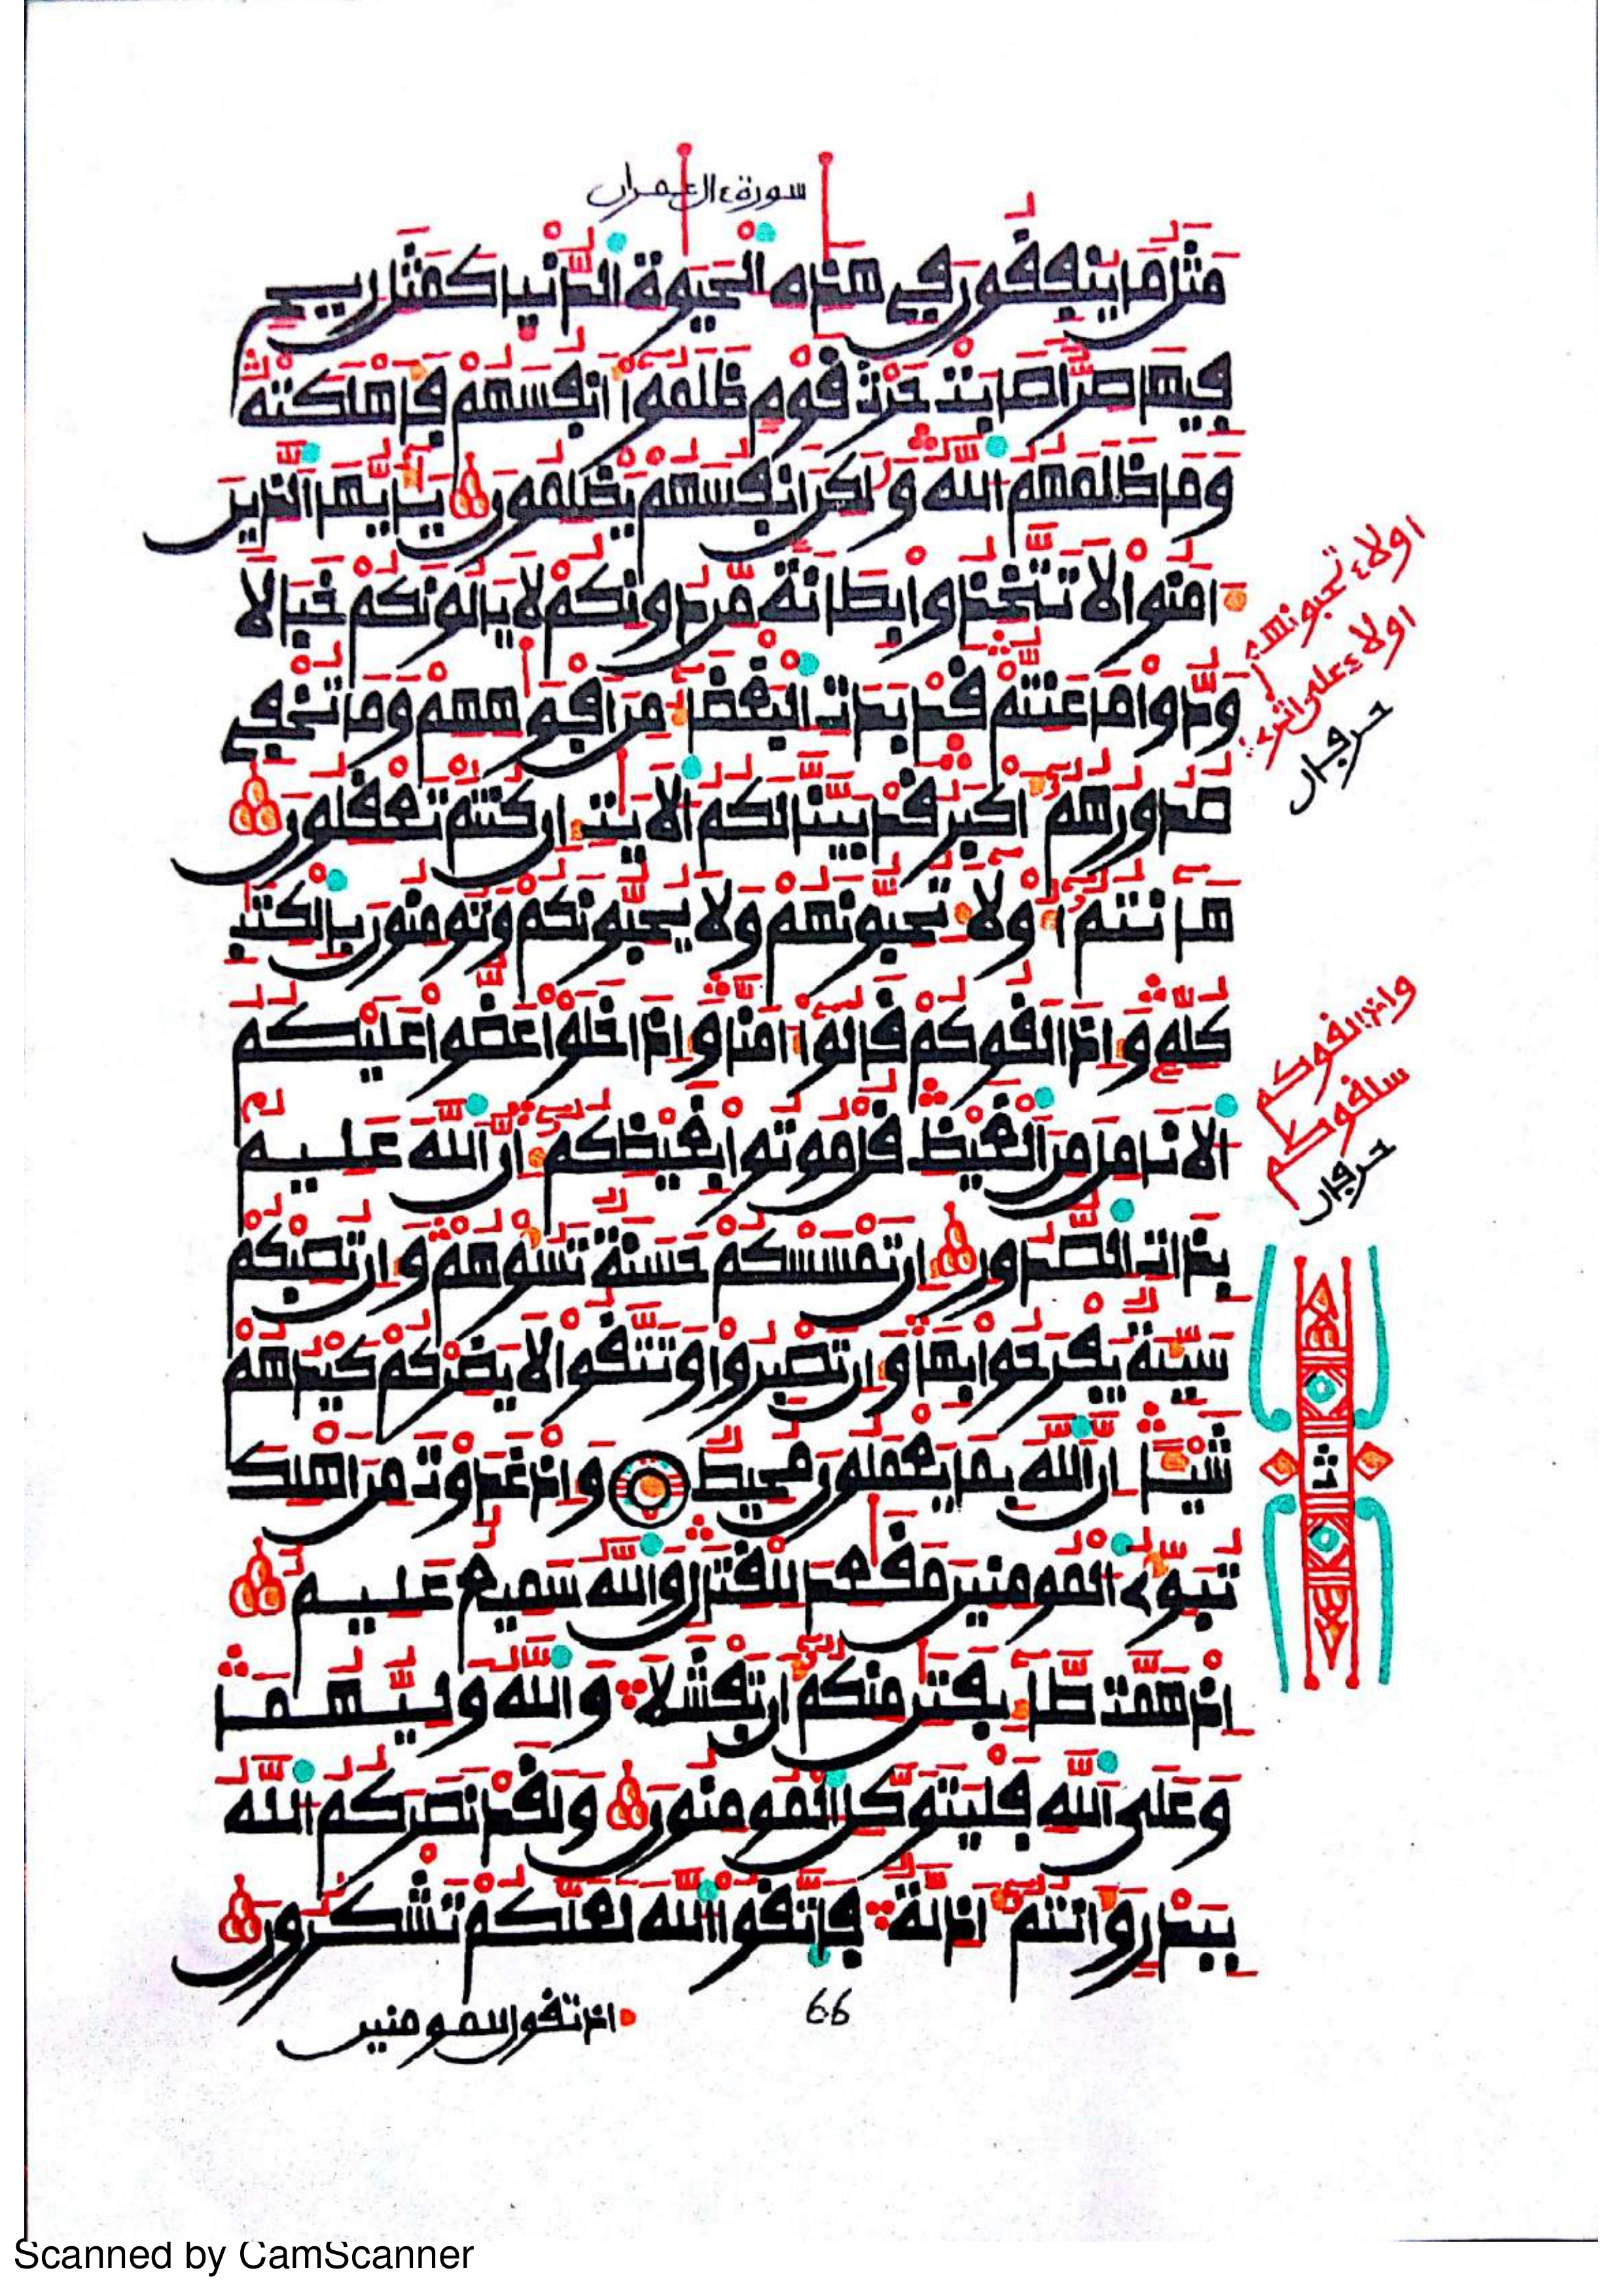 سورة ءال عمران
مَثَلُ مَا يُنفِقُونَ فِي هَذِهِ الْحَيَوٰةِ الدُّنْيَا كَمَثَلِ رِيحٍ
فِيهَا صِرٌّ أَصَابَتْ حَرْثَ قَوْمٍ ظَلَمُوا أَنفُسَهُمْ فَأَهْلَكَتْهُ
وَمَا ظَلَمَهُمُ اللَّهُ وَلَٰكِنْ أَنفُسَهُمْ يَظْلِمُونَ يَٰأَيُّهَا الَّذِينَ
ءَامَنُوا لَا تَتَّخِذُوا بِطَانَةً مِّن دُونِكُمْ لَا يَالُونَكُمْ خَبَالًا
وَدُّوا مَا عَنِتُّمْ قَدْ بَدَتِ الْبَغْضَاءُ مِنْ أَفْوَٰهِهِمْ وَمَا تُخْفِي
صُدُورُهُمُ أَكْبَرُ قَدْ بَيَّنَّا لَكُمُ الْأَيَٰتِ إِن كُنتُمْ تَعْقِلُونَ
هَٰأَنتُمُ أُولَاءِ تُحِبُّونَهُمْ وَلَا يُحِبُّونَكُمْ وَتُومِنُونَ بِالْكِتَٰبِ
كُلِّهِ وَإِذَا لَقُوكُمْ قَالُوا ءَامَنَّا وَإِذَا خَلَوْا عَضُّوا عَلَيْكُمُ
الْأَنَامِلَ مِنَ الْغَيْظِ قُلْ مُوتُوا بِغَيْظِكُمُ إِنَّ اللَّهَ عَلِيمٌ
بِذَاتِ الصُّدُورِ إِن تَمْسَسْكُمْ حَسَنَةٌ تَسُؤْهُمْ وَإِن تُصِبْكُمْ
سَيِّئَةٌ يَفْرَحُوا بِهَا وَإِن تَصْبِرُوا وَتَتَّقُوا لَا يَضِرْكُمْ كَيْدُهُمْ
شَيْئًا إِنَّ اللَّهَ بِمَا يَعْمَلُونَ مُحِيطٌ وَإِذْ غَدَوْتَ مِنْ أَهْلِكَ
تُبَوِّئُ الْمُومِنِينَ مَقَٰعِدَ لِلْقِتَالِ وَاللَّهُ سَمِيعٌ عَلِيمٌ
إِذْ هَمَّت طَّائِفَتَٰنِ مِنكُمُ أَن تَفْشَلَا وَاللَّهُ وَلِيُّهُمَا
وَعَلَى اللَّهِ فَلْيَتَوَكَّلِ الْمُومِنُونَ وَلَقَدْ نَصَرَكُمُ اللَّهُ
بِبَدْرٍ وَأَنتُمُ أَذِلَّةٌ فَاتَّقُوا اللَّهَ لَعَلَّكُمْ تَشْكُرُونَ
66
اذ تقول للمومنين
اولاء تحبونهم
اولاء على اثري
حرفان
واذا لقوكم
سلقوكم
حرفان
ث
Scanned by CamScanner